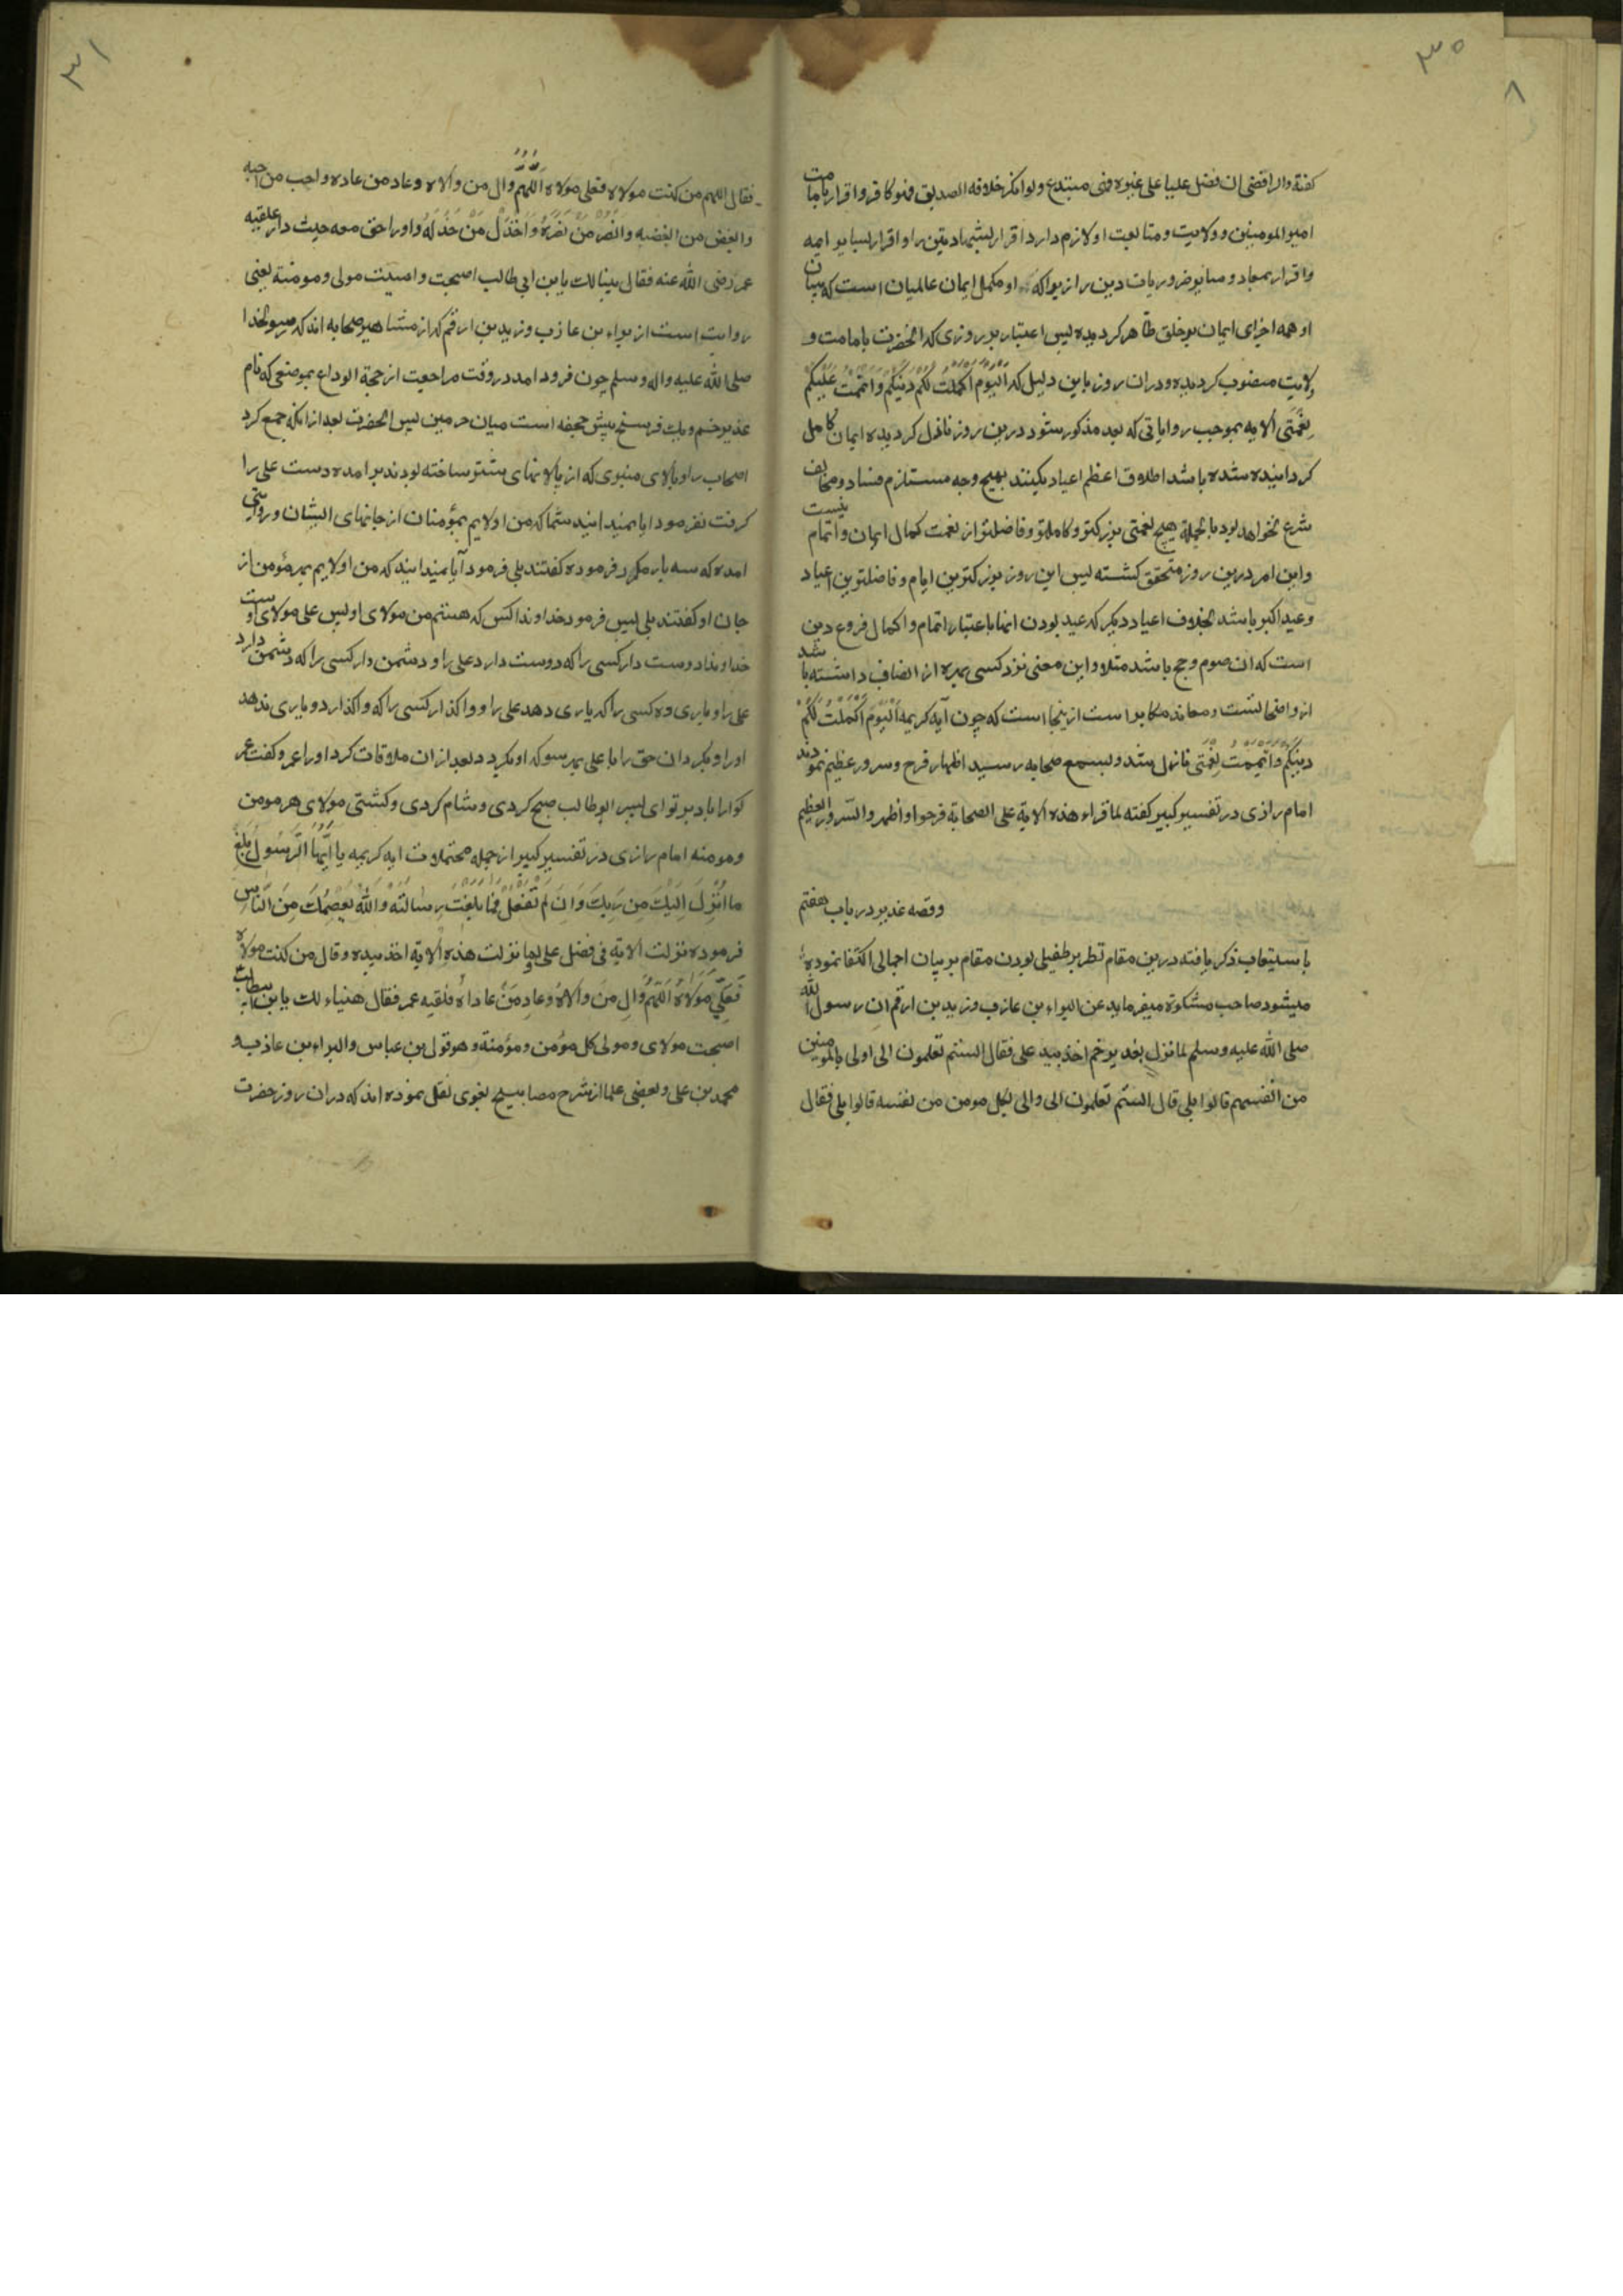 ۳۰
۸
کفته والرافضی ان فضل علیا علی غیره فهو مبتدع ولو انکر خلافه الصدیق فهو کافر واقرار بامامت
امیر المومنین و ولایت ومتابعت او لازم دارد اقرار بشهادتین را و اقرار بسایر ایمه
واقرار بمعاد و سایر ضروریات دین را زیرا که او مکمل ایمان عالمیان است که ببیان
او همه اجزای ایمان بر خلق ظاهر کردیده پس اعتبار بر روزی که انحضرت بامامت و
ولایت منصوب کردیده و دران روز باین دلیل که اَلْیَوْمَ اَکْمَلْتُ لَکُمْ دِینَکُمْ وَاَتْمَمْتُ عَلَیْکُمْ
نِعْمَتی الایه بموجب روایاتی که بعد مذکور شود درین روز نازل کردیده ایمان کامل
کردانیده شده باشد اطلاق اعظم اعیاد بکنند بهیچ وجه مستلزم فساد ومخالف
شرع نخواهد بود بالجمله هیچ نعمتی بزرکتر و کاملتر وفاضلتر از نعمت کمال ایمان و اتمام نیست
واین امر درین روز متحقق کشته پس این روز بزرکترین ایام و فاضلترین اعیاد
وعید اکبر باشد بخلاف اعیاد دیکر که عید بودن انها باعتبار اتمام و اکمال فروع دین
است که ان صوم وحج باشد مثلا و این معنی نزد کسی بهره از انصاف داشته باشد
از واضحاتست و معاند مکابر است ازینجا است که چون آیه کریمه اَلْیَوْمَ اَکْمَلْتُ لَکُمْ
دِینَکُمْ وَاَتْمَمْتُ نِعْمَتی نازل شد وبسمع صحابه رسید اظهار فرح و سرور عظیم نمودند
امام رازی در تفسیر کبیر کفته لما قراء هذه الایة علی الصحابة فرحوا و اظهروا السّرور العظیم
وقصه غدیر در باب هفتم
باستیعاب ذکر یافته درین مقام نظر بر طفیلی بودن مقام بر بیان اجمالی اکتفا نموده
میشود صاحب مشکوة میفرماید عن البراء بن عازب وزید بن ارقم ان رسول الله
صلی الله علیه وسلم لما نزل بغدیر خم اخذ بید علی فقال الستم تعلمون انی اولی بالمومنین
من انفسهم قالوا بلی قال الستم تعلمون انی والی بکل مومن من نفسه قالوا بلی فقال
۳۱
فقال اللهم من کنت مولاه فعلی مولاه اَللّهُمَّ وال من والاه وعاد من عاداه واحب من احبه
وابغض من ابغضه وانْصُرْ مَنْ نَصَرَهُ وَاخْذُلْ مَنْ خَذَلَهُ وادر الحق معه حیث دار فلقیه
عمر رضی الله عنه فقال هنیالک یا بن ابی طالب اصبحت وامسیت مولی ومومنة یعنی
روایت است از براء بن عازب وزید بن ارقم که از مشاهیر صحابه اند که رسولخدا
صلی الله علیه واله وسلم چون فرود امد در وقت مراجعت از حجة الوداع بموضعی که نام
غدیر خم و یک فرسخ پیش جحفه است میان حرمین پس انحضرت بعد از انکه جمع کرد
اصحاب را و بالای منبری که از پالانهای شتر ساخته بودند بر امده دست علی را
کرفت بفرمود ایا نمیدانید شما که من اولایم بمؤمنان از جانهای ایشان و روایتی
امده که سه بار مکرر فرموده کفتند بلی فرمود آیا نمیدانید که من اولایم بهر مؤمن از
جان او کفتند بلی پس فرمود خداوندا کس که هستم من مولای او پس علی مولای اوست
خداوندا دوست دار کسی را که دوست دارد علی را و دشمن دار کسی را که دشمن دارد
علی را و یاری ده کسی را که یاری دهد علی را و واکذار کسی را که واکذارد و یاری ندهد
او را و بکردان حق را با علی بهر سو که او بکردد بعد ازان ملاقات کرد او را عمر وکفت عمر
کوارا باد بر تو ای پسر ابوطالب صبح کردی و شام کردی وکشتی مولای هر مومن
ومومنه امام رازی در تفسیر کبیر از جمله محتملات ایه کریمه یا اَیُّهَا الرَّسُولُ بَلِّغْ
ما اُنْزِلَ اِلَیْکَ مِنْ رَبِّکَ وَاِنْ لَمْ تَفْعَلْ فَما بَلَّغْتَ رِسالَتَهُ وَاللّهُ یَعْصِمُکَ مِنَ النّاسِ
فرموده نزلت الایة فی فضل علی ولما نزلت هذه الایة اخذ بیده وقال من کنت مولاه
فَعَلِیٌّ مَوْلاهُ اَللّهُمَّ وَالِ مَنْ والاهُ وَعادِ مَنْ عاداهُ فلقیه عمر فقال هنیاء لک یا بن ابیطالب
اصبحت مولای ومولی کل مؤمن ومؤمنة وهو قول بن عباس والبراء بن عازب و
محمد بن علی وبعضی علما از شرح مصابیح بغوی نقل نموده اند که دران روز حضرت